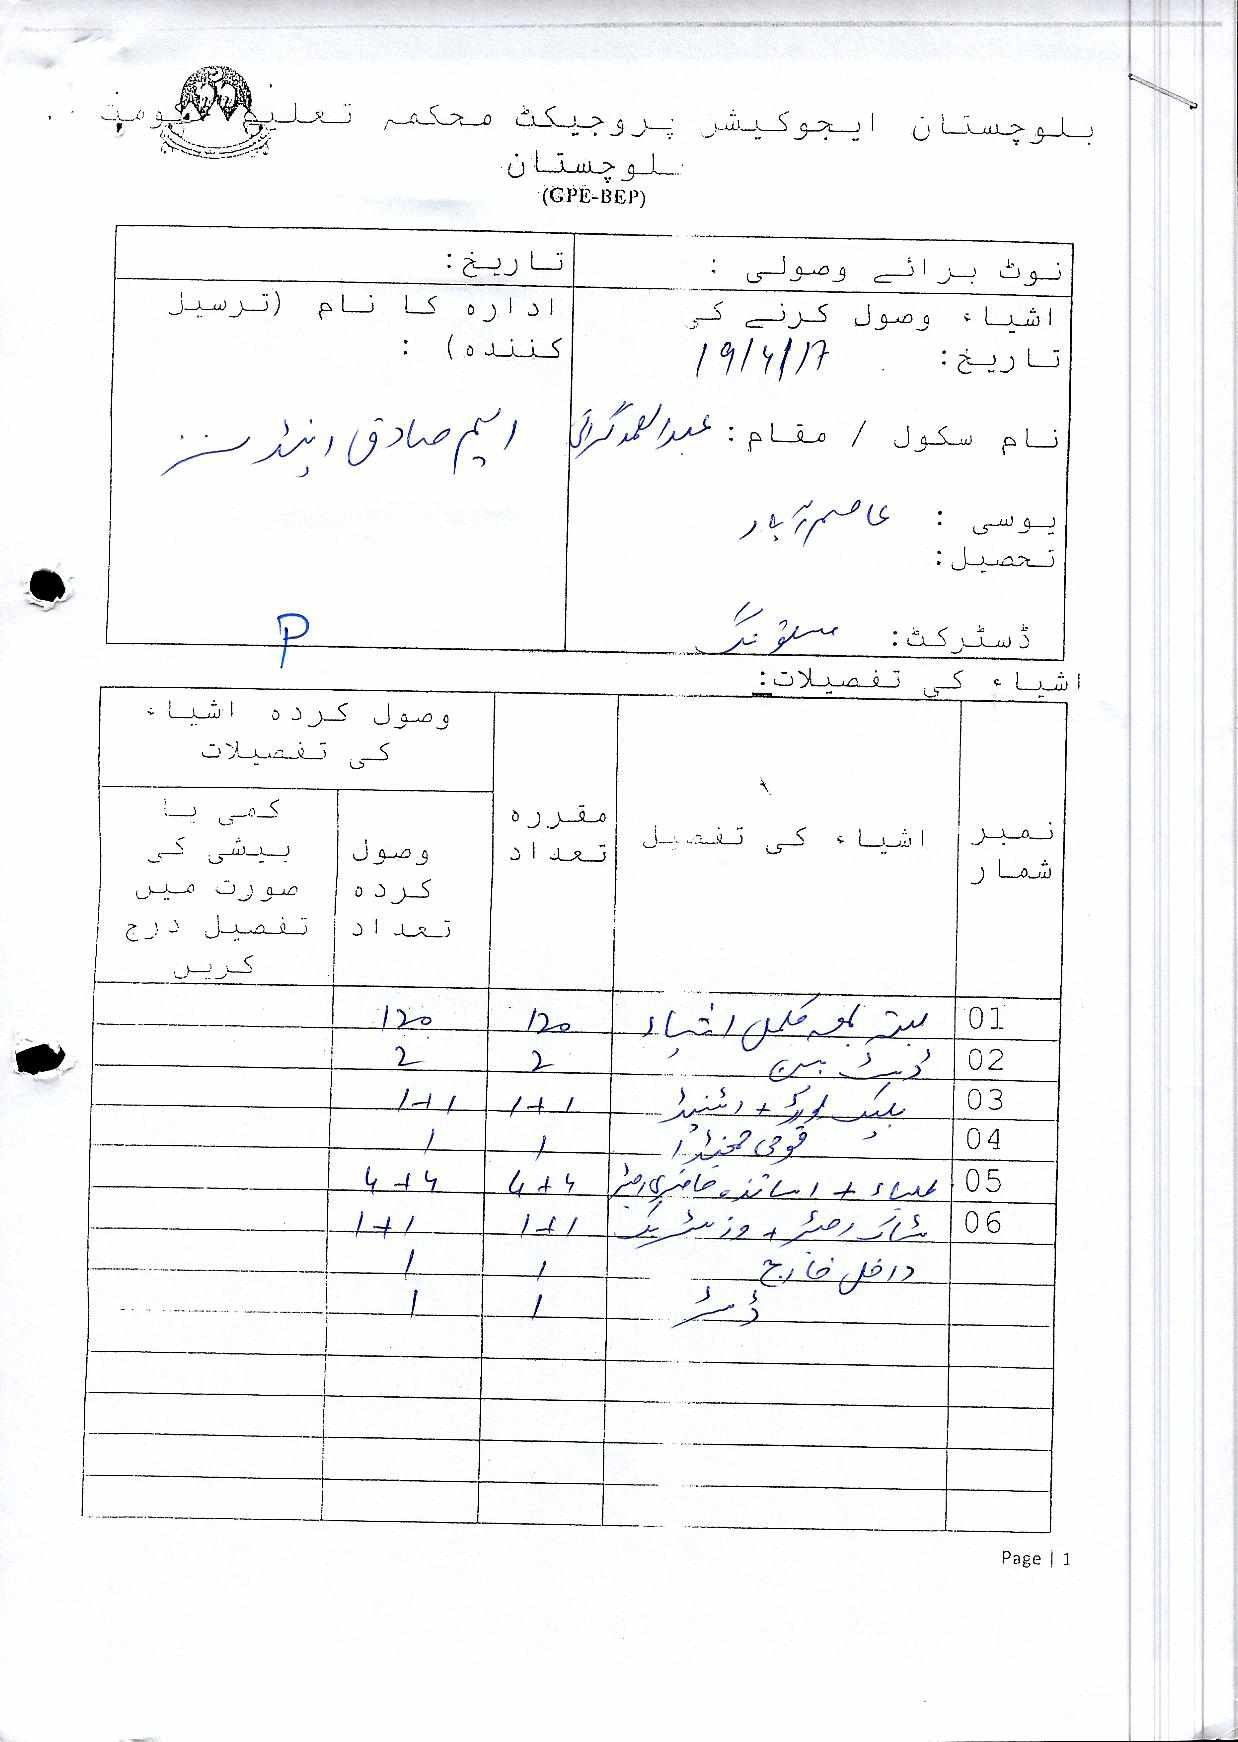 بلوچستان ایجوکیشن پروجیکٹ محکمہ تعلیم حکومت
بلوچستان
(GPE-BEP)
نوٹ برائے وصولی :
تاریخ:
اشیاء وصول کرنے کی
تاریخ: 19/4/17
نام سکول / مقام: عبدالصمد
یوسی : عاصم آباد
تحصیل:
ڈسٹرکٹ: مستونگ
ادارہ کا نام (ترسیل
کنندہ) :
ایم صادق اینڈ سنز
P
اشیاء کی تفصیلات:
نمبر شمار
اشیاء کی تفصیل
مقررہ تعداد
وصول کردہ اشیاء کی تفصیلات
وصول کردہ تعداد
کمی یا بیشی کی صورت میں تفصیل درج کریں
01 بستہ بمعہ مکمل اشیاء 120 120
02 ڈسٹ بین 2 2
03 بلیک بورڈ + سٹینڈ 1+1 1+1
04 قومی جھنڈا 1 1
05 طلباء + اساتذہ حاضری رجسٹر 4+4 4+4
06 سٹاک رجسٹر + وزیٹر بک 1+1 1+1
داخل خارج 1 1
ڈسٹر 1 1
Page | 1